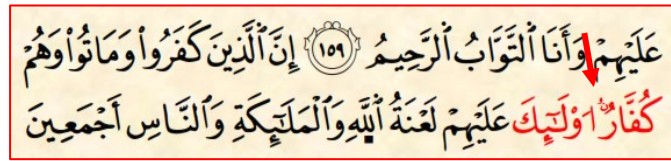 عَلَيْهِمْ وَأَنَا ٱلتَّوَّابُ ٱلرَّحِيمُ ١٥٩ إِنَّ ٱلَّذِينَ كَفَرُوا۟ وَمَاتُوا۟ وَهُمْ
كُفَّارٌ ا۟وْلَٰٓئِكَ عَلَيْهِمْ لَعْنَةُ ٱللَّهِ وَٱلْمَلَٰٓئِكَةِ وَٱلنَّاسِ أَجْمَعِينَ